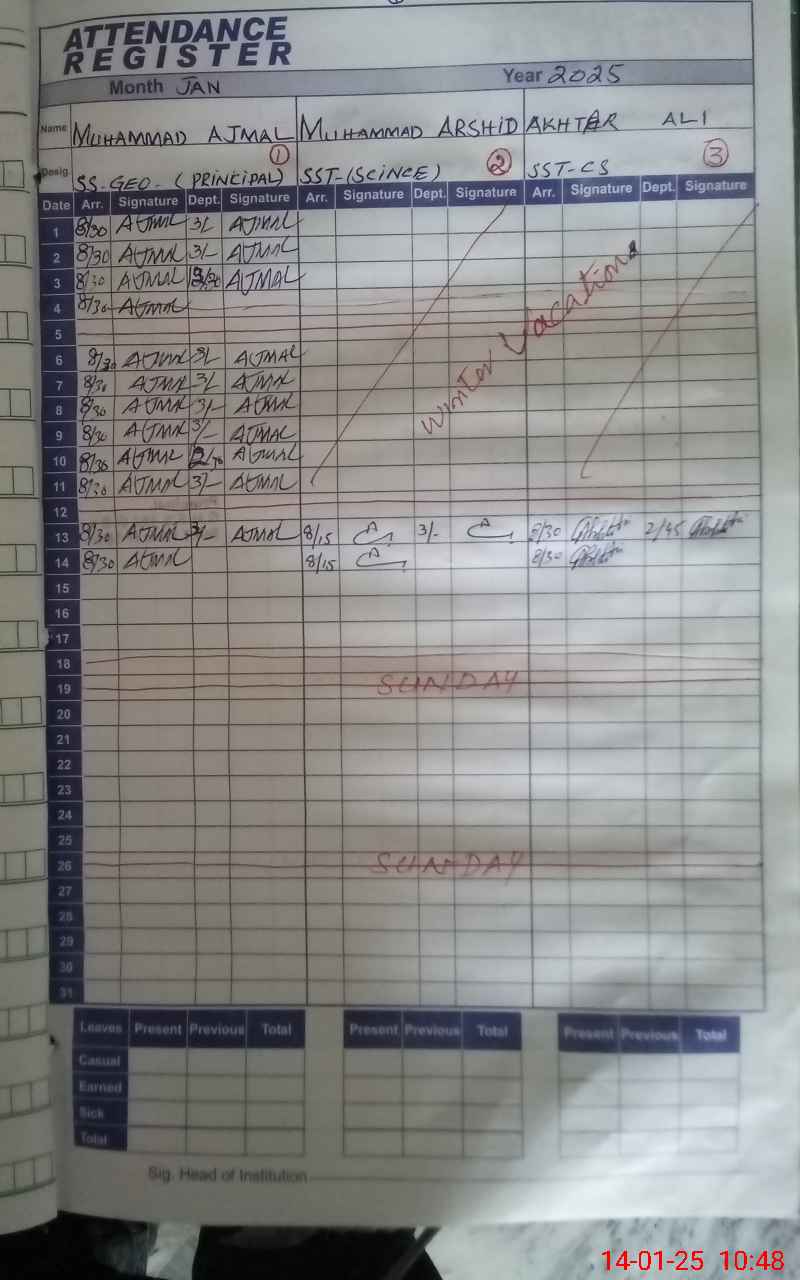 ATTENDANCE
REGISTER
Month JAN Year 2025
Name MUHAMMAD AJMAL MUHAMMAD ARSHID AKHTAR ALI
Desig. SS-GEO-(PRINCIPAL) ① SST-(SCINCE) ② SST-CS ③
Date Arr. Signature Dept. Signature Arr. Signature Dept. Signature Arr. Signature Dept. Signature
1 8/30 AJMAL 3/- AJMAL
2 8/30 AJMAL 3/- AJMAL
3 8/30 AJMAL AJMAL
4 8/30 AJMAL
5
6 8/30 AJMAL 3/ AJMAL
7 8/30 AJMAL 3/ AJMAL
8 8/30 AJMAL 3/- AJMAL
9 8/30 AJMAL 3/- AJMAL
10 8/30 AJMAL 2/30 AJMAL
11 8/30 AJMAL 3/- AJMAL
Winter Vacations
12
13 8/30 AJMAL 3/- AJMAL 8/15 3/- 8/30 2/45
14 8/30 AJMAL 8/15 8/30
15
16
17
18
19 SUNDAY
20
21
22
23
24
25
26 SUNDAY
27
28
29
30
31
Leaves Present Previous Total Present Previous Total Present Previous Total
Casual
Earned
Sick
Total
Sig. Head of Institution
14-01-25 10:48